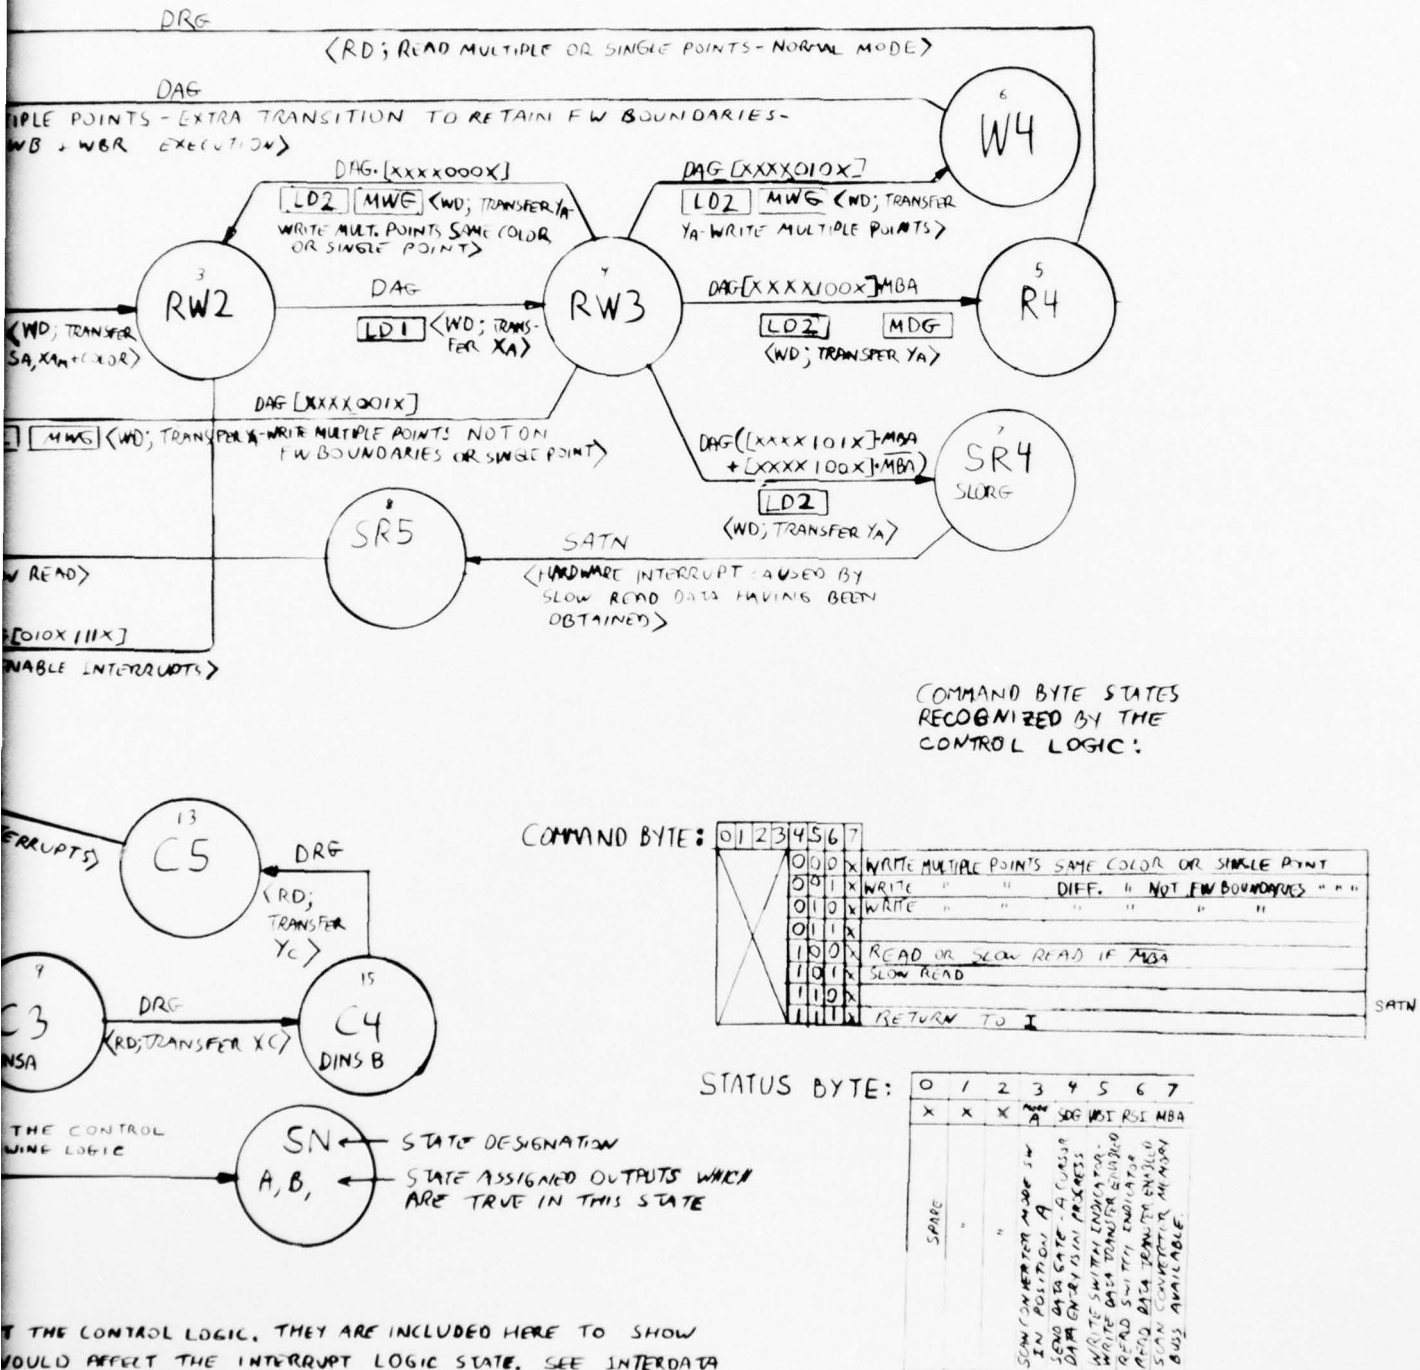 DRG
<RD; READ MULTIPLE OR SINGLE POINTS-NORMAL MODE>
DAG
TIPLE POINTS-EXTRA TRANSITION TO RETAIN FW BOUNDARIES-
WB + WBR EXECUTION>
6
W4
DAG·[XXXX000X]
LD2 MWG <WD; TRANSFER YA-
WRITE MULT. POINTS SAME COLOR
OR SINGLE POINT>
DAG [XXXX010X]
LD2 MWG <WD; TRANSFER
YA-WRITE MULTIPLE POINTS>
3
RW2
DAG
LD1 <WD; TRANS-
FER XA>
4
RW3
DAG[XXXX100X]·MBA
LD2 MDG
<WD; TRANSFER YA>
5
R4
<WD; TRANSFER
SA, XAM+COLOR>
DAG [XXXX001X]
MWG <WD; TRANSFER YA-WRITE MULTIPLE POINTS NOT ON
FW BOUNDARIES OR SINGLE POINT>
DAG([XXXX101X]·MBA
+[XXXX100X]·M̅B̅A̅)
LD2
<WD; TRANSFER YA>
7
SR4
SLORG
8
SR5
SATN
<HARDWARE INTERRUPT CAUSED BY
SLOW READ DATA HAVING BEEN
OBTAINED>
W READ>
[010X111X]
NABLE INTERRUPTS>
COMMAND BYTE STATES
RECOGNIZED BY THE
CONTROL LOGIC:
13
C5
ERRUPTS>
DRG
<RD;
TRANSFER
YC>
9
C3
NSA
DRG
<RD; TRANSFER XC>
15
C4
DINS B
COMMAND BYTE: 0 1 2 3 4 5 6 7
0 0 0 X WRITE MULTIPLE POINTS SAME COLOR OR SINGLE POINT
0 0 1 X WRITE " " DIFF. " NOT FW BOUNDARIES " " "
0 1 0 X WRITE " " " " " "
0 1 1 X
1 0 0 X READ OR SLOW READ IF M̅B̅A̅
1 0 1 X SLOW READ
1 1 0 X
1 1 1 X RETURN TO I
SATN
STATUS BYTE: 0 1 2 3 4 5 6 7
X X X MODE A SDG WSI RSI MBA
SPARE
"
"
SCAN CONVERTER MODE SW
IN POSITION A
SEND DATA GATE - A CURSOR
DATA ENTRY IS IN PROGRESS
WRITE SWITCH INDICATOR-
WRITE DATA TRANSFER ENABLED
READ SWITCH INDICATOR
READ DATA TRANSFER ENABLED
SCAN CONVERTER MEMORY
BUSS AVAILABLE.
THE CONTROL
WING LOGIC
SN
A, B,
STATE DESIGNATION
STATE ASSIGNED OUTPUTS WHICH
ARE TRUE IN THIS STATE
T THE CONTROL LOGIC. THEY ARE INCLUDED HERE TO SHOW
WOULD AFFECT THE INTERRUPT LOGIC STATE. SEE INTERDATA